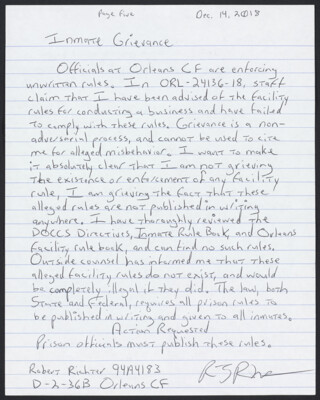 Page Five Dec. 14, 2018
Inmate Grievance
Officials at Orleans CF are enforcing
unwritten rules. In ORL-24136-18, staff
claim that I have been advised of the facility
rules for conducting a business and have failed
to comply with these rules. Grievance is a non-
adversarial process, and cannot be used to cite
me for alleged misbehavior. I want to make
it absolutely clear that I am not grieving
the existence or enforcement of any facility
rule, I am grieving the fact that these
alleged rules are not published in writing
anywhere. I have thoroughly reviewed the
DOCCS Directives, Inmate Rule Book, and Orleans
facility rule book, and can find no such rules.
Outside counsel has informed me that these
alleged facility rules do not exist, and would
be completely illegal if they did. The law, both
State and Federal, requires all prison rules to
be published in writing and given to all inmates.
Action Requested
Prison officials must publish these rules.
Robert Richter 94A4183
D-2-36B Orleans CF